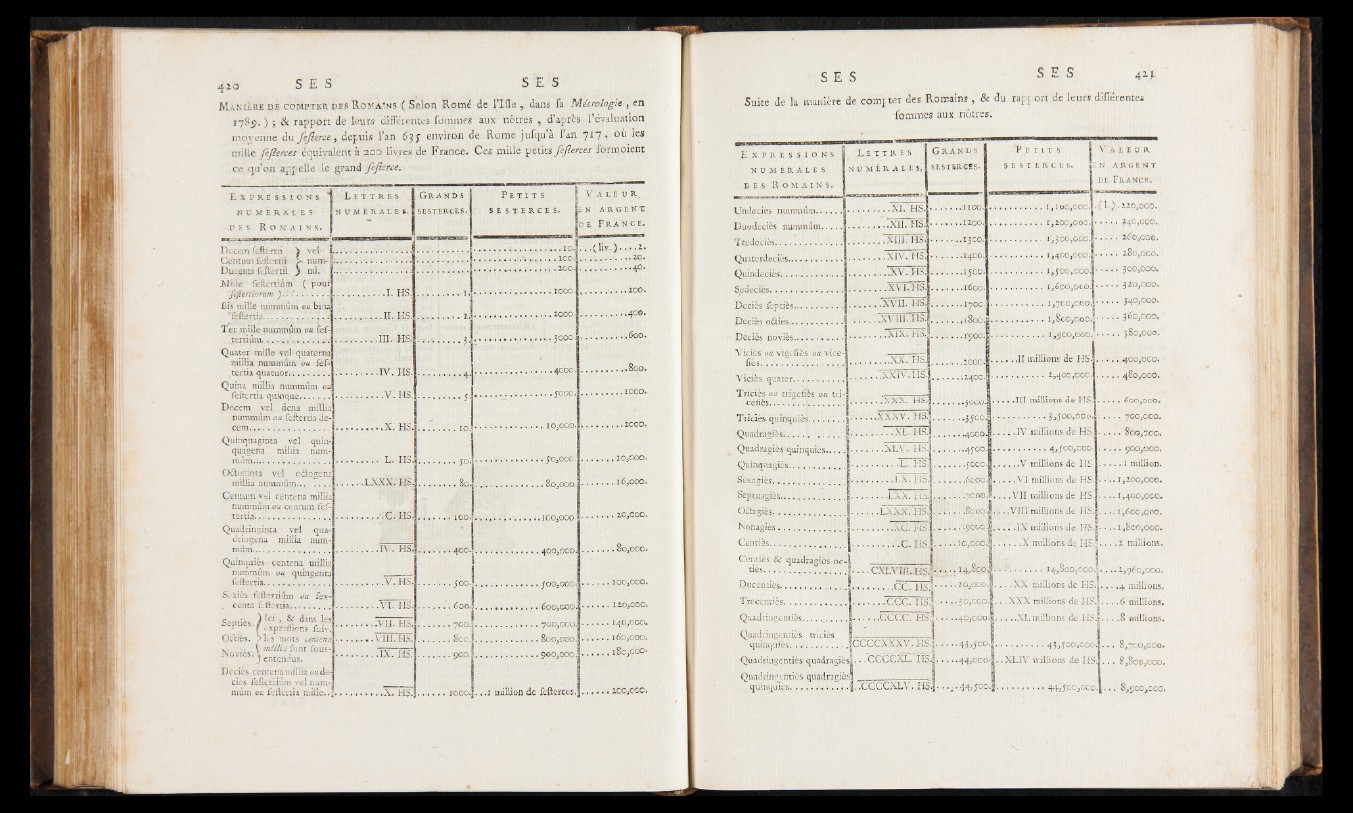 420 SES SES
MANIÈRE DE COMPTER DES ROMAINS ( Selon Romé de l'Isle, dans sa Métrologie, en
1789. ) ; & rapport de leurs différentes sommes aux nôtres, d'après l'évaluation
moyenne du sesterce, depuis l'an 635 environ de Rome jusqu'à l'an 717, où les
mille sesterces équivalent à 200 livres de France. Ces mille petits sesterces formoient
ce qu'on appelle le grand sesterce.
EXPRESSIONS NUMERALES DES ROMAINS. LETTRES NUMÉRALES. GRANDS SESTERCES. PETITS SESTERCES. VALEUR EN ARGENT DE FRANCE.
Decem sestertii } vel ....10. ...(liv.)....2.
Centum sestertii } num- ....100. ....20.
Ducenti sestertii } mi. ....200. ....40.
Mille sestertiûm ( pour
sestertiorum )... ....I. HS. ....1. ....1000. ....200.
Bis mille nummûm ou bina
sestertia.... ....II. HS. ....2. ....2000. ....400.
Ter mille nummûm ou ses-
tertiûm.... ....III. HS. ....3. ....3000. ....600.
Quater mille vel quaterna
millia nummûm ou ses-
tertia quatuor.... ....IV. HS. ....4. ....4000. ....800.
Quina millia nummûm ou
sestertia quinque.... ....V. HS. ....5. ....5000. ....1000.
Decem vel dena millia
nummûm ou sestertia de-
cem.... ....X. HS. ....10. ....10,000. ....2000.
Quinquaginta vel quin-
quagena millia num-
mûm.... ....L. HS. ....50. ....50,000. ....10,000.
Octoginta vel octogena
millia nummûm.... ....LXXX. HS. ....80. ....80,000. ....16,000.
Centum vel centena millia
nummûm ou centum ses-
tertia.... ....C. HS. ....100. ....100,000. ....20,000.
Quadringinta vel qua-
dringena millia num-
mûm.... ....IV. HS. ....400. ....400,000. ....80,000.
Quinquiès centena millia
nummûm ou quingenta
sestertia.... ....V. HS. ....500. ....500,000. ....100,000.
Sexiès sestertiûm ou sex-
centa sestertia.... ....VI. HS. ....600. ....600,000. ....120,000.
Septies. } Ici, & dans les
expressions suiv. ....VII. HS. ....700. ....700,000. ....140,000.
Octiès. } les mots centena ....VIII. HS. ....800. ....800,000. ....160,000.
Noviès. } millia sont sous-
entendus. ....IX. HS. ....900. ....900,000. ....180,000.
Deciès centena millia ou de-
ciès sestertiûm vel num-
mûm ou sestertia mille.. ....X. HS. ....1000. ...1 million de sesterces. ....200,000.
SES SES 421
Suite de la manière de compter des Romains, & du rapport de leurs différentes
sommes aux nôtres.
EXPRESSIONS NUMERALES DES ROMAINS. LETTRES NUMÉRALES. GRANDS SESTERCES. PETITS SESTERCES. VALEUR EN ARGENT DE FRANCE.
Undeciès nummûm.... ....XI. HS. ....1100. ....1,100,000. (l.).220,000.
Duodeciès nummûm.... ....XII. HS. ....1200. ....1,200,000. ....240,000.
Tredeciès.... ....XIII. HS. ....1300. ....1,300,000. ....260,000.
Quaterdeciès.... ....XIV. HS. ....1400. ....1,400,000. ....280,000.
Quindeciès.... ....XV. HS. ....1500. ....1,500,000. ....300,000.
Sedeciès.... ....XVI. HS. ....1600. ....1,600,000. ....320,000.
Deciès septiès.... ....XVII. HS. ....1700. ....1,700,000. ....340,000.
Deciès octiès.... ....XVIII. HS. ....1800. ....1,800,000. ....360,000.
Deciès noviès.... ....XIX. HS. ....1900. ....1,900,000. ....380,000.
Viciès ou vigesiès ou vice-
siès.... ....XX. HS. ....2000. ....II millions de HS. ....400,000.
Viciès quater.... ....XXIV. HS. ....2400. ....2,400,000. ....480,000.
Triciès ou trigesiès ou tri-
cesiès.... ....XXX. HS. ....3000. ....III millions de HS. ....600,000.
Triciès quinquiès.... ....XXXV. HS. ....3500. ....3,500,000. ....700,000.
Quadragiès.... ....XL. HS. ....4000. ....IV millions de HS. ....800,000.
Quadragiès quinquiès.... ....XLV. HS. ....4500. ....4,500,000. ....900,000.
Quinquagiès.... ....L. HS. ....5000. ....V millions de HS. ....1 million.
Sexagiès.... ....LX. HS. ....6000. ....VI millions de HS. ....1,200,000.
Septuagiès.... ....LXX. HS. ....7000. ....VII millions de HS. ....1,400,000.
Octagiès.... ....LXXX. HS. ....8000. ....VIII millions de HS. ....1,600,000.
Nonagiès.... ....XC. HS. ....9000. ....IX millions de HS. ....1,800,000.
Centiès.... ....C. HS. ....10,000. ....X millions de HS. ....2 millions.
Centiès & quadragiès oc-
tiès.... ....CXLVIII. HS. ....14,800. ....14,800,000. ....2,960,000.
Ducentiès.... ....CC. HS. ....20,000. ....XX millions de HS. ....4 millions.
Trecentiès.... ....CCC. HS. ....30,000. ...XXX millions de HS. ....6 millions.
Quadringentiès.... ....CCCC. HS. ....40,000. ....XL millions de HS. ....8 millions.
Quadringentiès triciès
quinquiès.... CCCCXXXV. HS. ....43,500. ....43,500,000. ....8,700,000.
Quadringentiès quadragiès ...CCCCXL. HS. ....44,000. ...XLIV millions de HS. ....8,800,000.
Quadringentiès quadragiès
quinquiès.... ..CCCCXLV. HS. ....44,500. ....44,500,000. ....8,900,000.